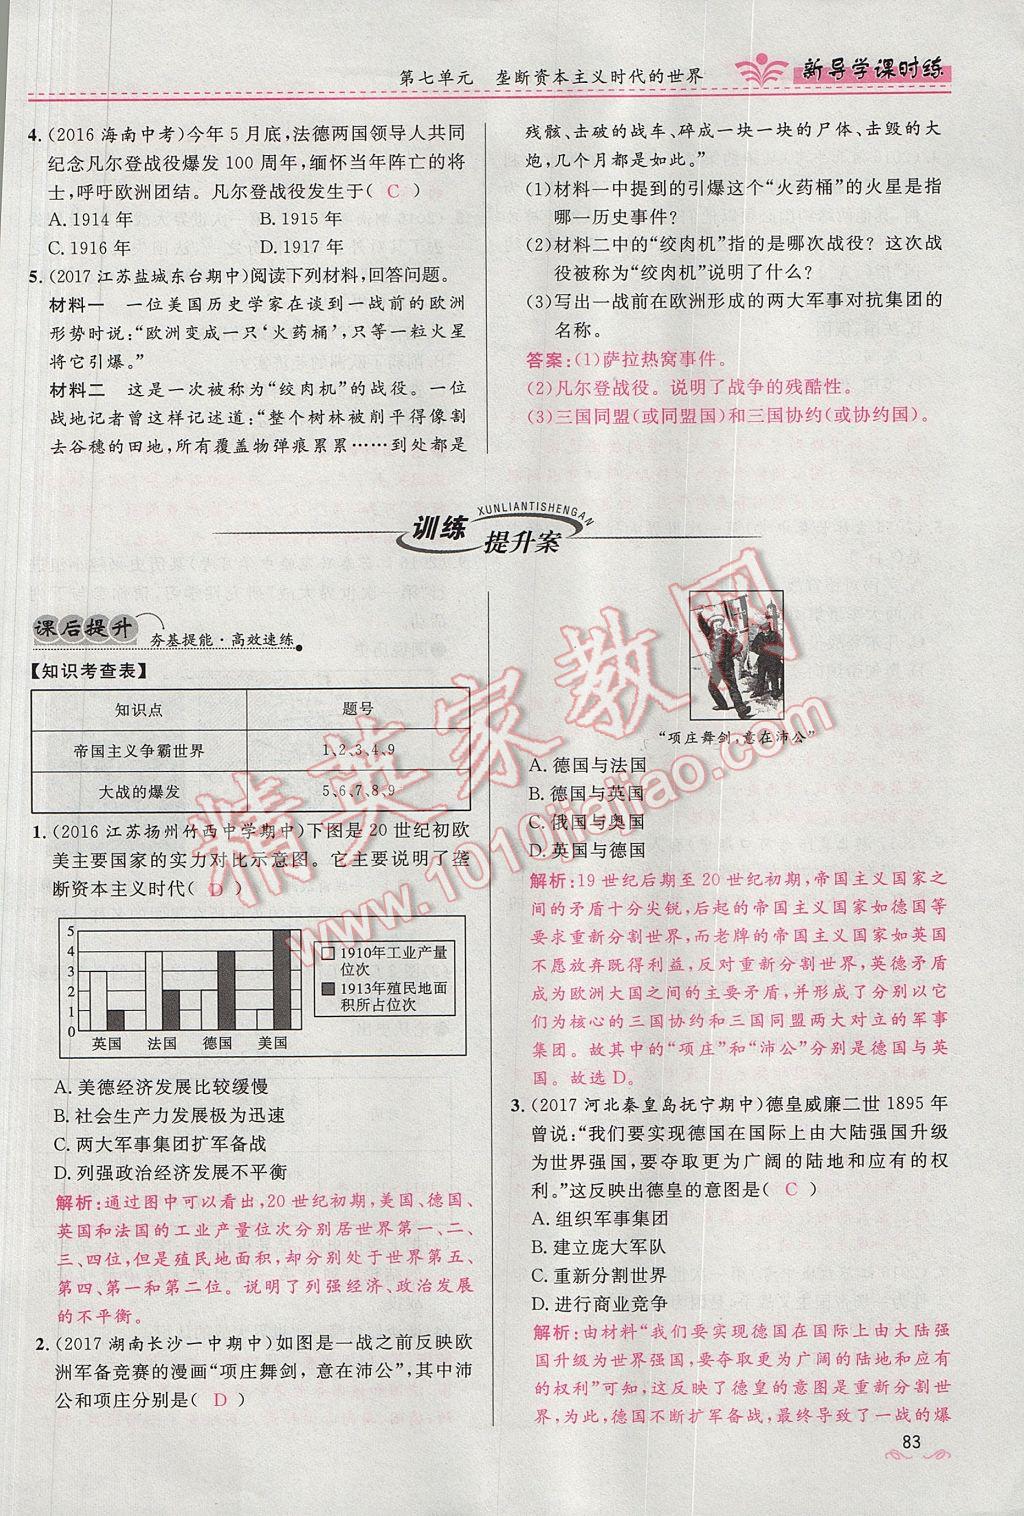 第七单元 垄断资本主义时代的世界
新导学课时练
4.(2016 海南中考)今年 5 月底,法德两国领导人共同
纪念凡尔登战役爆发 100 周年,缅怀当年阵亡的将
士,呼吁欧洲团结。凡尔登战役发生于( C )
A. 1914 年 B. 1915 年
C. 1916 年 D. 1917 年
5.(2017 江苏盐城东台期中)阅读下列材料,回答问题。
材料一 一位美国历史学家在谈到一战前的欧洲
形势时说:“欧洲变成一只‘火药桶’,只等一粒火星
将它引爆。”
材料二 这是一次被称为“绞肉机”的战役。一位
战地记者曾这样记述道:“整个树林被削平得像割
去谷穗的田地,所有覆盖物弹痕累累……到处都是
残骸、击破的战车、碎成一块一块的尸体、击毁的大
炮,几个月都是如此。”
(1)材料一中提到的引爆这个“火药桶”的火星是指
哪一历史事件?
(2)材料二中的“绞肉机”指的是哪次战役?这次战
役被称为“绞肉机”说明了什么?
(3)写出一战前在欧洲形成的两大军事对抗集团的
名称。
答案:(1)萨拉热窝事件。
(2)凡尔登战役。说明了战争的残酷性。
(3)三国同盟(或同盟国)和三国协约(或协约国)。
训练
XUNLIANTISHENGAN
提升案
课后提升
夯基提能·高效速练
【知识考查表】
知识点 题号
帝国主义争霸世界 1、2、3、4、9
大战的爆发 5、6、7、8、9
1.(2016 江苏扬州竹西中学期中)下图是 20 世纪初欧
美主要国家的实力对比示意图。它主要说明了垄
断资本主义时代( D )
5
4
3
2
1
0
英国 法国 德国 美国
1910年工业产量
位次
1913年殖民地面
积所占位次
A. 美德经济发展比较缓慢
B. 社会生产力发展极为迅速
C. 两大军事集团扩军备战
D. 列强政治经济发展不平衡
解析:通过图中可以看出,20 世纪初期,美国、德国、
英国和法国的工业产量位次分别居世界第一、二、
三、四位,但是殖民地面积,却分别处于世界第五、
第四、第一和第二位。说明了列强经济、政治发展
的不平衡。
2.(2017 湖南长沙一中期中)如图是一战之前反映欧
洲军备竞赛的漫画“项庄舞剑,意在沛公”,其中沛
公和项庄分别是( D )
“项庄舞剑,意在沛公”
A. 德国与法国
B. 德国与英国
C. 俄国与奥国
D. 英国与德国
解析:19 世纪后期至 20 世纪初期,帝国主义国家之
间的矛盾十分尖锐,后起的帝国主义国家如德国等
要求重新分割世界,而老牌的帝国主义国家如英国
不愿放弃既得利益,反对重新分割世界,英德矛盾
成为欧洲大国之间的主要矛盾,并形成了分别以它
们为核心的三国协约和三国同盟两大对立的军事
集团。故其中的“项庄”和“沛公”分别是德国与英
国。故选 D。
3.(2017 河北秦皇岛抚宁期中)德皇威廉二世 1895 年
曾说:“我们要实现德国在国际上由大陆强国升级
为世界强国,要夺取更为广阔的陆地和应有的权
利。”这反映出德皇的意图是( C )
A. 组织军事集团
B. 建立庞大军队
C. 重新分割世界
D. 进行商业竞争
解析:由材料“我们要实现德国在国际上由大陆强
国升级为世界强国,要夺取更为广阔的陆地和应有
的权利”可知,这反映了德皇的意图是重新分割世
界,为此,德国不断扩军备战,最终导致了一战的爆
83
精英家教网
www.1010jiajiao.com